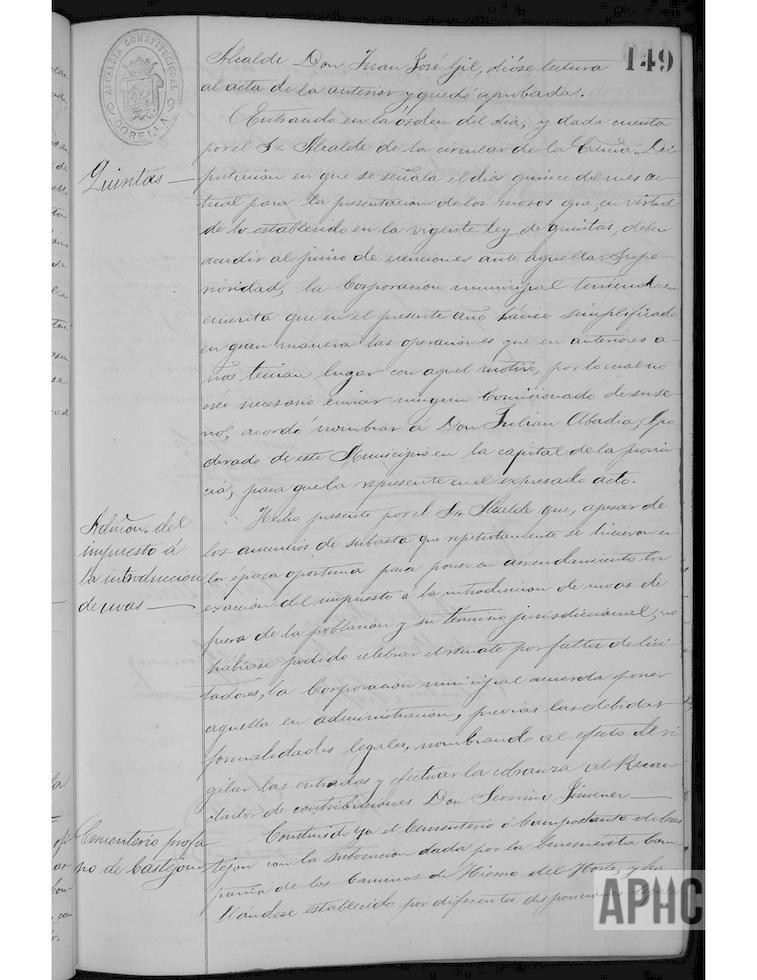 149
ALCALDIA CONSTITUCIONAL
CORELLA
Alcalde Don Juan José Gil, dióse lectura
al acta de la anterior y quedó aprobada.
Entrando en la órden del dia, y dada cuenta
Quintas —
por el Sr. Alcalde de la circular de la Excma. Di-
putación en que se señala el dia quince del mes ac-
tual para la presentación de los mozos que en virtud
de lo establecido en la vigente ley de quintas, deben
acudir al juicio de exenciones ante aquella Supe-
rioridad, la Corporación municipal teniendo en
cuenta que en el presente año hanse simplificado
en gran manera las operaciones que en anteriores a-
ños tenian lugar con aquel motivo, por lo cual no
cree necesario enviar ningun Comisionado de su se-
no, acordó nombrar á Don Julian Abadia, Apo-
derado de este Municipio en la capital de la provin-
cia, para que la represente en el expresado acto.
Admon. del
impuesto á
la introduccion
de uvas —
Hecho presente por el Sr. Alcalde que, apesar de
los anuncios de subasta que repetidamente se hicieron en
la época oportuna para poner en arrendamiento la
exacción del impuesto a la introduccion de uvas de
fuera de la población y su término jurisdiccional, no
habiase podido celebrar el remate por falta de lici-
tadores, la Corporación municipal acuerda poner
aquella en administración, previas las debidas
formalidades legales, nombrando al efecto de vi-
gilar las entradas y efectuar la cobranza al Recau-
dador de contribuciones Don Severino Jimenez —
Cementerio profa-
no de Castejon
Construido ya el Cementerio ó Camposanto de Cas-
tejon con la subvención dada por la Benemérita Com-
pañia de los Caminos de Hierro del Norte, y ha-
llándose establecido por diferentes disposiciones
APHC